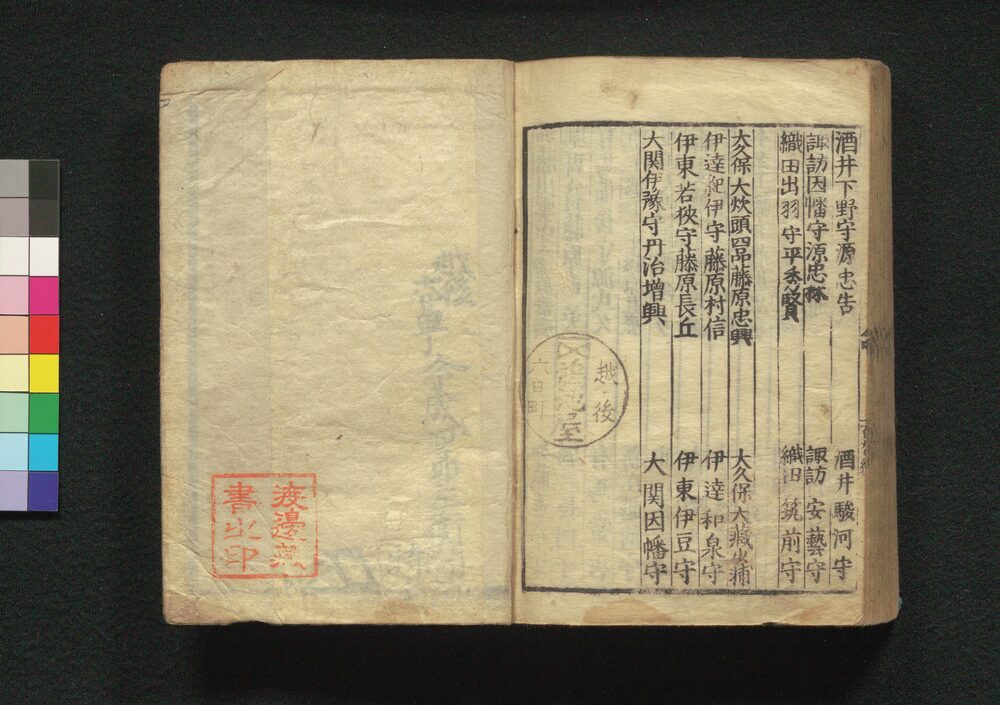 酒井下野守源忠告 酒井駿河守
諏訪因幡守源忠林 諏訪安藝守
織田出羽守平秀賢 織田筑前守
大久保大炊頭藤原忠興 大久保大藏少輔
伊達紀伊守藤原村信 伊達和泉守
伊東若狹守藤原長丘 伊東伊豆守
大関伊豫守丹治増興 大関因幡守
越後
六日町
渡邊
書之印